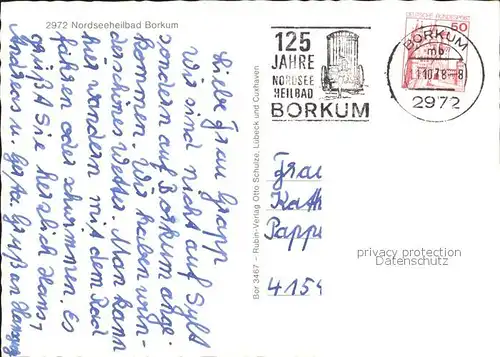 2972 Nordseeheilbad Borkum
Liebe Frau Grapp
Wir sind nicht auf Sylt
sondern auf Borkum ange-
kommen. Wir haben wun-
derschönes Wetter. Man kann
hier wandern mit dem Rad
fahren oder schwimmen. Es
grüßt Sie herzlich Hans
Andreas u.
Bor 3467 – Rubin-Verlag Otto Schulze, Lübeck und Cuxhaven
125
JAHRE
NORDSEE
HEILBAD
BORKUM
DEUTSCHE BUNDESPOST
50
BORKUM
mb
10.78-8
2972
Frau
Kath
Pappe
4154
privacy protection
Datenschutz